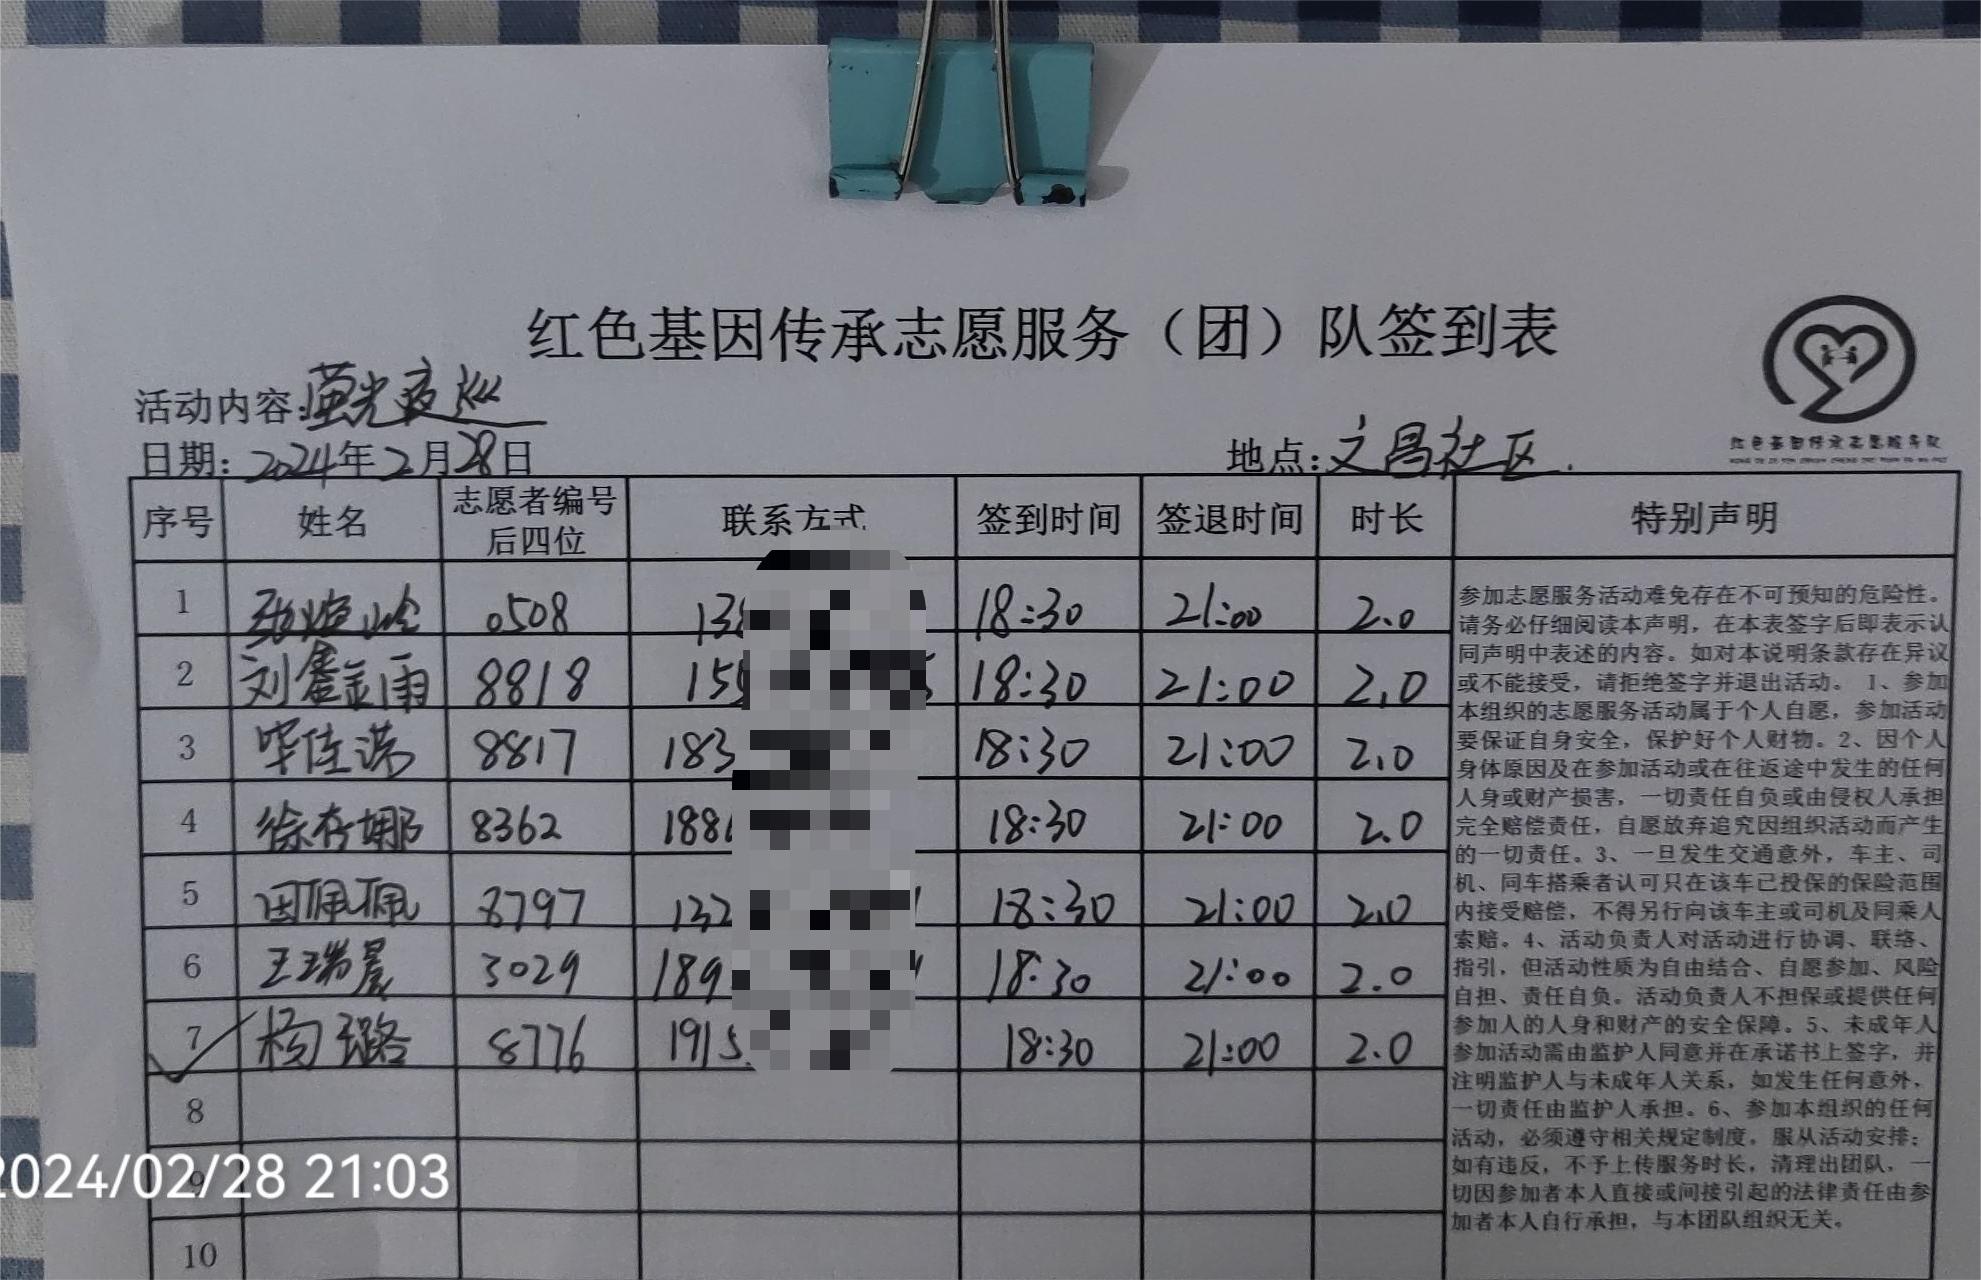 红色基因传承志愿服务（团）队签到表
活动内容:萤光夜巡
日期：2024年2月28日
地点：文昌社区.
红色基因传承志愿服务队
序号 姓名 志愿者编号后四位 联系方式 签到时间 签退时间 时长 特别声明
1 0508 13 18:30 21:00 2.0
2 刘鑫雨 8818 15 18:30 21:00 2.0
3 毕佳诺 8817 183 18:30 21:00 2.0
4 徐存娜 8362 188 18:30 21:00 2.0
5 田佩佩 8797 132 18:30 21:00 2.0
6 王瑞晨 3029 189 18:30 21:00 2.0
7 杨璐 8776 1915 18:30 21:00 2.0
8
9
10
参加志愿服务活动难免存在不可预知的危险性。
请务必仔细阅读本声明，在本表签字后即表示认
同声明中表述的内容。如对本说明条款存在异议
或不能接受，请拒绝签字并退出活动。 1、参加
本组织的志愿服务活动属于个人自愿，参加活动
要保证自身安全，保护好个人财物。2、因个人
身体原因及在参加活动或在往返途中发生的任何
人身或财产损害，一切责任自负或由侵权人承担
完全赔偿责任，自愿放弃追究因组织活动而产生
的一切责任。3、一旦发生交通意外，车主、司
机、同车搭乘者认可只在该车已投保的保险范围
内接受赔偿，不得另行向该车主或司机及同乘人
索赔。4、活动负责人对活动进行协调、联络、
指引，但活动性质为自由结合、自愿参加、风险
自担、责任自负。活动负责人不担保或提供任何
参加人的人身和财产的安全保障。5、未成年人
参加活动需由监护人同意并在承诺书上签字，并
注明监护人与未成年人关系，如发生任何意外，
一切责任由监护人承担。6、参加本组织的任何
活动，必须遵守相关规定制度，服从活动安排；
如有违反，不予上传服务时长，清理出团队，一
切因参加者本人直接或间接引起的法律责任由参
加者本人自行承担，与本团队组织无关。
2024/02/28 21:03